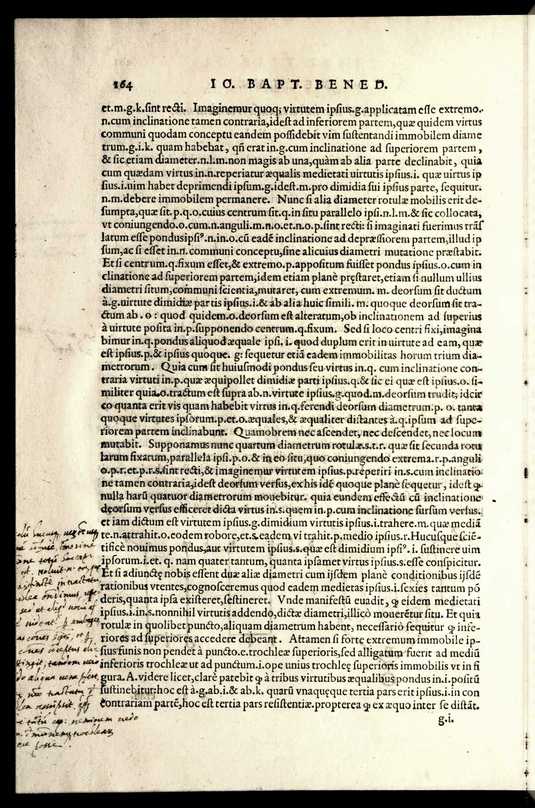 164 IO. BAPT. BENED.
et.m.g.k.sint recti. Imaginemur quoq; virtutem ipsius.g.applicatam esse extremo.
n.cum inclinatione tamen contraria, idest ad inferiorem partem, quæ quidem virtus
communi quodam conceptu eandem possidebit vim sustentandi immobilem diame
trum.g.i.k. quam habebat, qñ erat in.g.cum inclinatione ad superiorem partem,
& sic etiam diameter.n.l.m.non magis ab una, quàm ab alia parte declinabit, quia
cum quædam virtus in.n.reperiatur æqualis medietati uirtutis ipsius.i. quæ uirtus ip
sius.i.uim habet deprimendi ipsum.g.idest.m.pro dimidia sui ipsius parte, sequitur.
n.m.debere immobilem permanere. Nunc si alia diameter rotulæ mobilis erit de-
sumpta, quæ sit.p.q.o.cuius centrum sit.q.in situ parallelo ipsi.n.l.m.& sic collocata,
vt coniungendo.o.cum.n.anguli.m.n.o.et.n.o.p.sint recti: si imaginati fuerimus trāf
latum esse pondus ipsi⁹.n.in.o.cū eadē inclinatione ad depræssiorem partem, illud ip
sum, ac si esset in.n. communi conceptu, sine alicuius diametri mutatione præstabit.
Et si centrum.q.fixum esset, & extremo.p.appositum fuisset pondus ipsius.o.cum in
clinatione ad superiorem partem, idem etiam planè præstaret, etiam si nullum ullius
diametri situm, communi scientia, mutaret, cum extremum. m. deorsum sit ductum
à.g.uirtute dimidiæ partis ipsius.i.& ab alia huic simili. m: quoque deorsum sit tra-
ctum ab.o: quod quidem.o.deorsum est alteratum, ob inclinationem ad superius
à uirtute posita in.p.supponendo centrum.q.fixum. Sed si loco centri fixi, imagina
bimur in.q.pondus aliquod æquale ipsi.i. quod duplum erit in uirtute ad eam, quæ
est ipsius.p.& ipsius quoque. g: sequetur etiā eadem immobilitas horum trium dia-
metrorum. Quia cum sit huiusmodi pondus seu virtus in.q. cum inclinatione con-
traria virtuti in.p.quæ æquipollet dimidiæ parti ipsius.q.& sic ei quæ est ipsius.o. si-
militer quia.o.tractum est supra ab.n.virtute ipsius.g.quod.m.deorsum trudit; idcir
co quanta erit vis quam habebit virtus in.q.ferendi deorsum diametrum.p.o. tanta
quoque virtutes ipsorum.p.et.o.æquales, & æqualiter distantes à.q.ipsum ad supe-
riorem partem inclinabunt. Quamobrem nec ascendet, nec descendet, nec locum
mutabit. Supponamus nunc quartum diametrum rotulæ.s.t.r. quæ sit secunda rotu
larum fixatum, parallela ipsi.p.o.& in eo situ, quo coniungendo extrema.r.p.anguli
.o.p.r.et.p.r.s.sint recti, & imaginemur virtutem ipsius.p.reperiri in.s.cum inclinatio
ne tamen contraria, idest deorsum versus, ex his idē quoque planè sequetur, idest ꝙ
nulla harū quatuor diametrorum mouebitur. quia eundem effectū cū inclinatione
deorsum versus efficeret dicta virtus in.s.quem in.p.cum inclinatione sursum versus.
et iam dictum est virtutem ipsius.g.dimidium virtutis ipsius.i.trahere.m. quæ mediā
te.n.attrahit.o.eodem robore, et.s.eadem vi trahit.p.medio ipsius.r.Hucusque sciē-
tificè nouimus pondus, aut virtutem ipsius.s.quæ est dimidium ipsi⁹. i. sustinere uim
ipsorum.i.et. q. nam quater tantum, quanta ipsamet virtus ipsius.s.esse conspicitur.
Et si adiunctę nobis essent duæ aliæ diametri cum ijsdem planè conditionibus ijsdē
rationibus vtentes, cognosceremus quod eadem medietas ipsius.i.sexies tantum pō
deris, quanta ipsa existeret, sustineret. Vnde manifestū euadit, ꝙ eidem medietati
ipsius.i.in.s.nonnihil virtutis addendo, dictæ diametri, illicò mouerētur situ. Et quia
rotulæ in quolibet puncto, aliquam diametrum habent, necessariò sequitur ꝙ infe-
riores ad superiores accedere debeant. Attamen si forte extremum immobile ip-
sius funis non pendet à puncto.e.trochleæ superioris, sed alligatum fuerit ad mediū
inferioris trochleæ ut ad punctum.i.ope unius trochleę superioris immobilis vt in fi
gura. A. videre licet, clarè patebit ꝙ à tribus virtutibus æqualibus pondus in.i.positū
sustinebitur: hoc est à.g.ab.i.& ab.k. quarū vnaquęque tertia pars erit ipsius.i.in con
contrariam partē, hoc est tertia pars resistentiæ. propterea ꝙ ex æquo inter se distāt.
g.i.